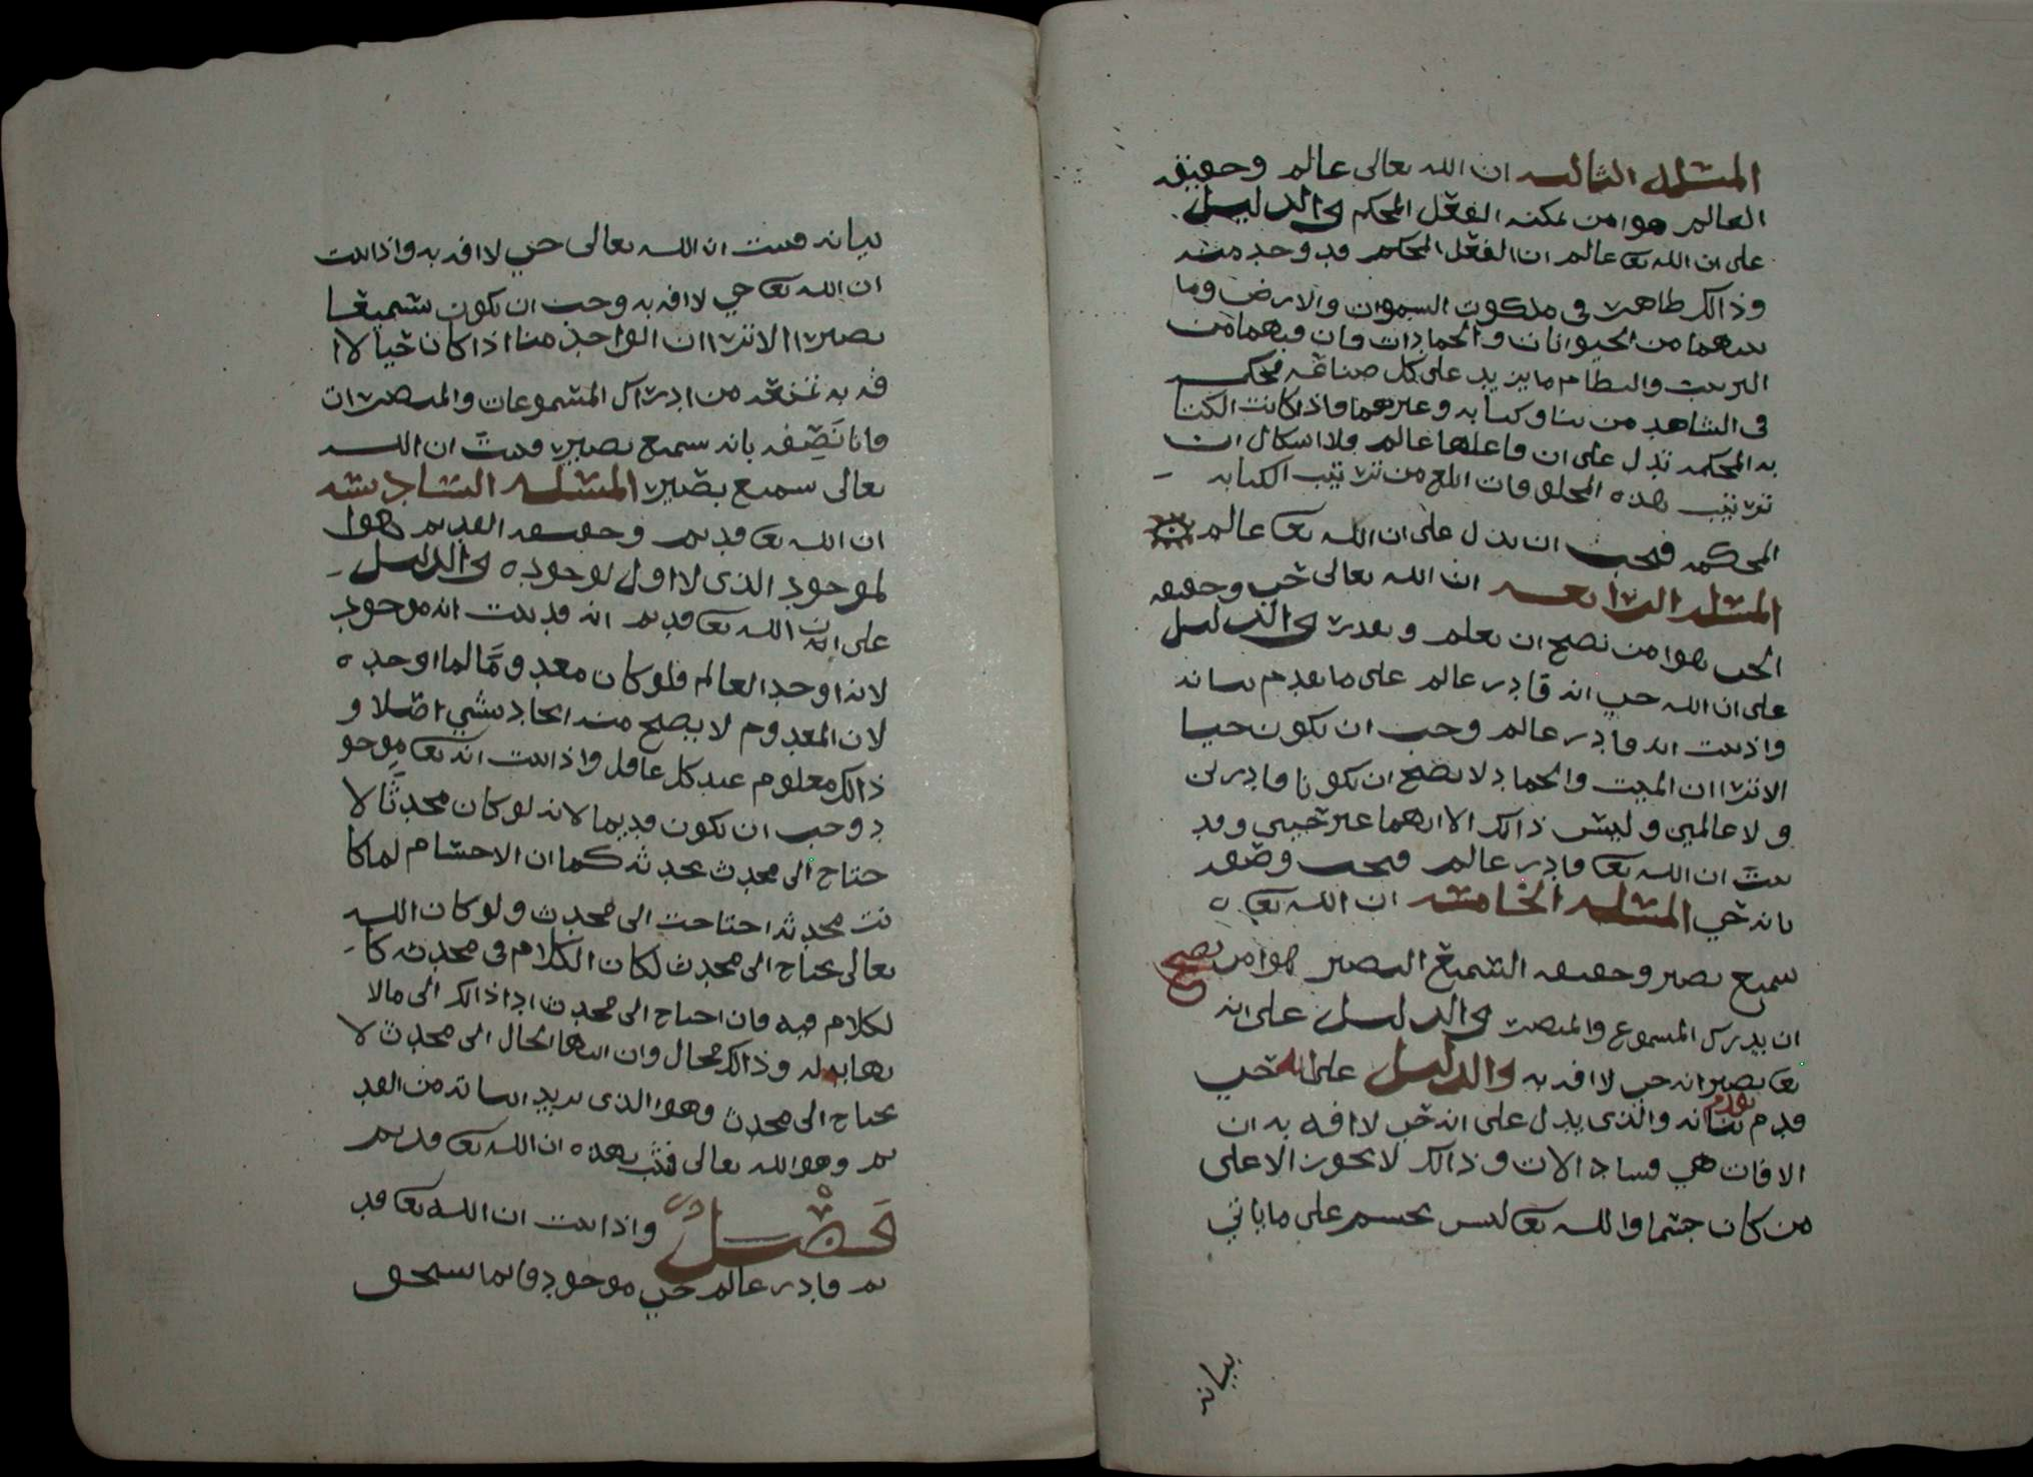 المسئلة الثالثه ان الله تعالى عالم وحقيقه
العالم هوا من يمكنه الفعل المحكم والدليل
على ان الله تعا عالم ان الفعل المحكم قد وجد منه
وذالك ظاهر في ملكوت السموات والارض وما
بينهما من الحيوانات والجمادات فان فيهما من
الترتيب والنظام ما يزيد على كل صناعه محكمه
في الشاهد من بنا وكتابه وغيرهما فاذا كانت الكتا
به المحكمه تدل على ان فاعلها عالم فلا اشكال ان
ترتيب هذه المخلوقات ابلغ من ترتيب الكتابه
المحكمه فيجب ان يدل على ان الله تعا عالم
المسئله الرابعه ان الله تعالى حي وحقيقه
الحي هوا من يصح ان يعلم ويقدر والدليل
على ان الله حي انه قادر عالم على ما تقدم بيانه
واذ ثبت انه قادر عالم وجب ان يكون حيا
الا ترا ان الميت والجماد لا يصح ان يكونا قادرين
ولا عالمين وليس ذالك الا انهما غير حيين وقد
ثبت ان الله تعا قادر عالم فيجب وصفه
بانه حي المسئله الخامسه ان الله تعا
سميع بصير وحقيقه السميع البصير هوا من يصح
ان يدرك المسموع والمبصر والدليل على انه
تعا بصير انه حي لا افه به والدليل على انه حي
قدم تقدم بيانه والذي يدل على انه حي لا افه به ان
الافات هي فساد الالات وذالك لا يجوز الا على
من كان جسما والله تعا ليس بجسم على ما ياتي
بيانه
بيانه فثبت ان الله تعالى حي لا افه به واذا ثبت
ان الله تعا حي لا افه به وجب ان يكون سميعا
بصيرا الا ترا ان الواحد منا اذا كان حيا لا ا
فه به تمنعه من ادراك المسموعات والمبصرات
فانا نصفه بانه سميع بصير فثبت ان الله
تعالى سميع بصير المسئله السادسه
ان الله تعا قديم وحقيقه القديم هوا
لموجود الذي لا اول لوجوده والدليل
على ان الله تعا قديم انه قد ثبت انه موجود
لانه اوجد العالم فلو كان معدوما لما اوجده
لان المعدوم لا يصح منه ايجاد شي اصلا و
ذالك معلوم عند كل عاقل واذا ثبت انه تعا موجو
د وجب ان يكون قديما لانه لو كان محدثا لا
حتاج الى محدث يحدثه كما ان الاجسام لما كا
نت محدثه احتاجت الى محدث ولو كان الله
تعالى يحتاج الى محدث لكان الكلام في محدثه كا
لكلام فيه فان احتاج الى محدث ادا ذالك الى مالا
نهايه له وذالك محال وان انتها الحال الى محدث لا
يحتاج الى محدث وهوا الذي نريد اثباته من القد
يم وهو الله تعالى فثبت بهذه ان الله تعا قديم
فصل واذا ثبت ان الله تعا قد
يم قادر عالم حي موجود فانما يستحق